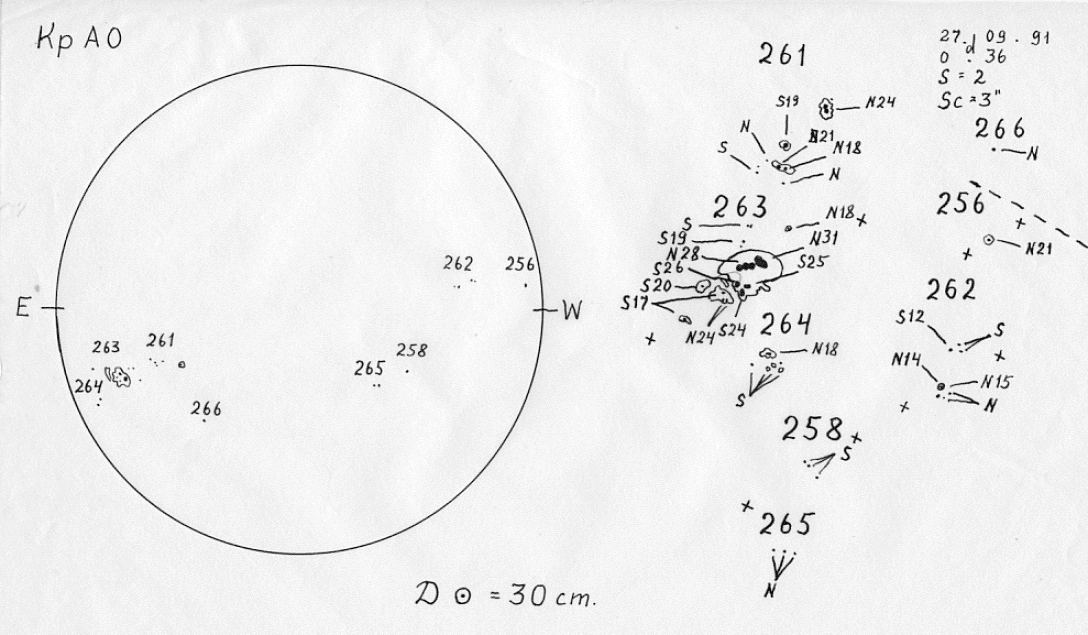 Кр АО
27.d 09.91
0.36
S = 2
Sc = 3"
E
W
262
256
263
261
264
266
265
258
D ⊙ = 30 cm.
261
S19
N24
N
N21
N18
S
N
263
S
N18
S19
N31
N28
S26
S25
S20
S17
N24
S24
264
N18
S
258
S
265
N
266
N
256
N21
262
S12
S
N14
N15
N